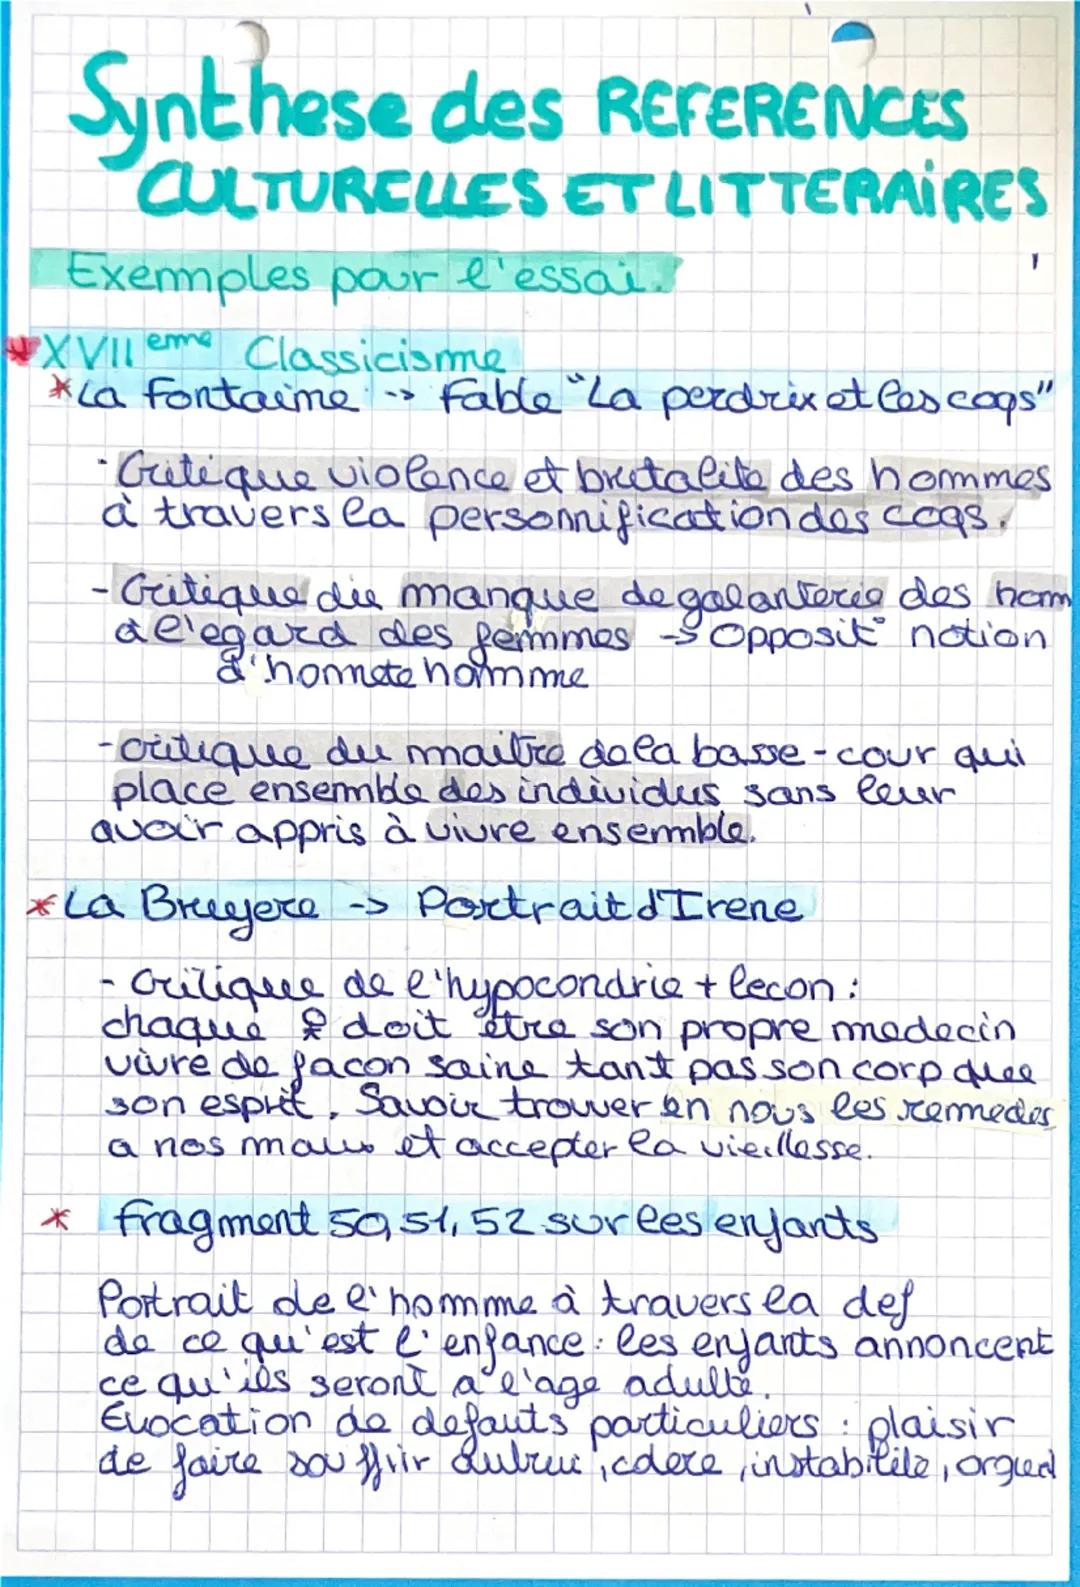 Synthese des REFERENCES
CULTURELLES ET LITTERAIRES
Exemples pour l'essai.
XVII eme Classicisme
*La Fontaine -> Fable "La perdrix et les coqs"
- Critique violence et brutalite des hommes
à travers la personnification des coqs.
- Critique du manque de galanterie des hom
à l'egard des femmes -> Opposit° notion
d'honnete homme
- critique du maitre de la basse-cour qui
place ensemble des individus sans leur
avoir appris à vivre ensemble.
*La Bruyere -> Portrait d'Irene
- Critique de l'hypocondrie + lecon :
chaque doit être son propre medecin
vivre de facon saine tant pas son corp que
son esprit. Savoir trouver en nous les remedes
a nos maux et accepter la vieillesse.
* Fragment 50, 51, 52 sur les enfants
Portrait de l'homme à travers la def
de ce qu'est l'enfance : les enfants annoncent
ce qu'ils seront a l'age adulte.
Evocation de defauts particuliers : plaisir
de faire souffrir autrui, colere, instabilite, orgueil